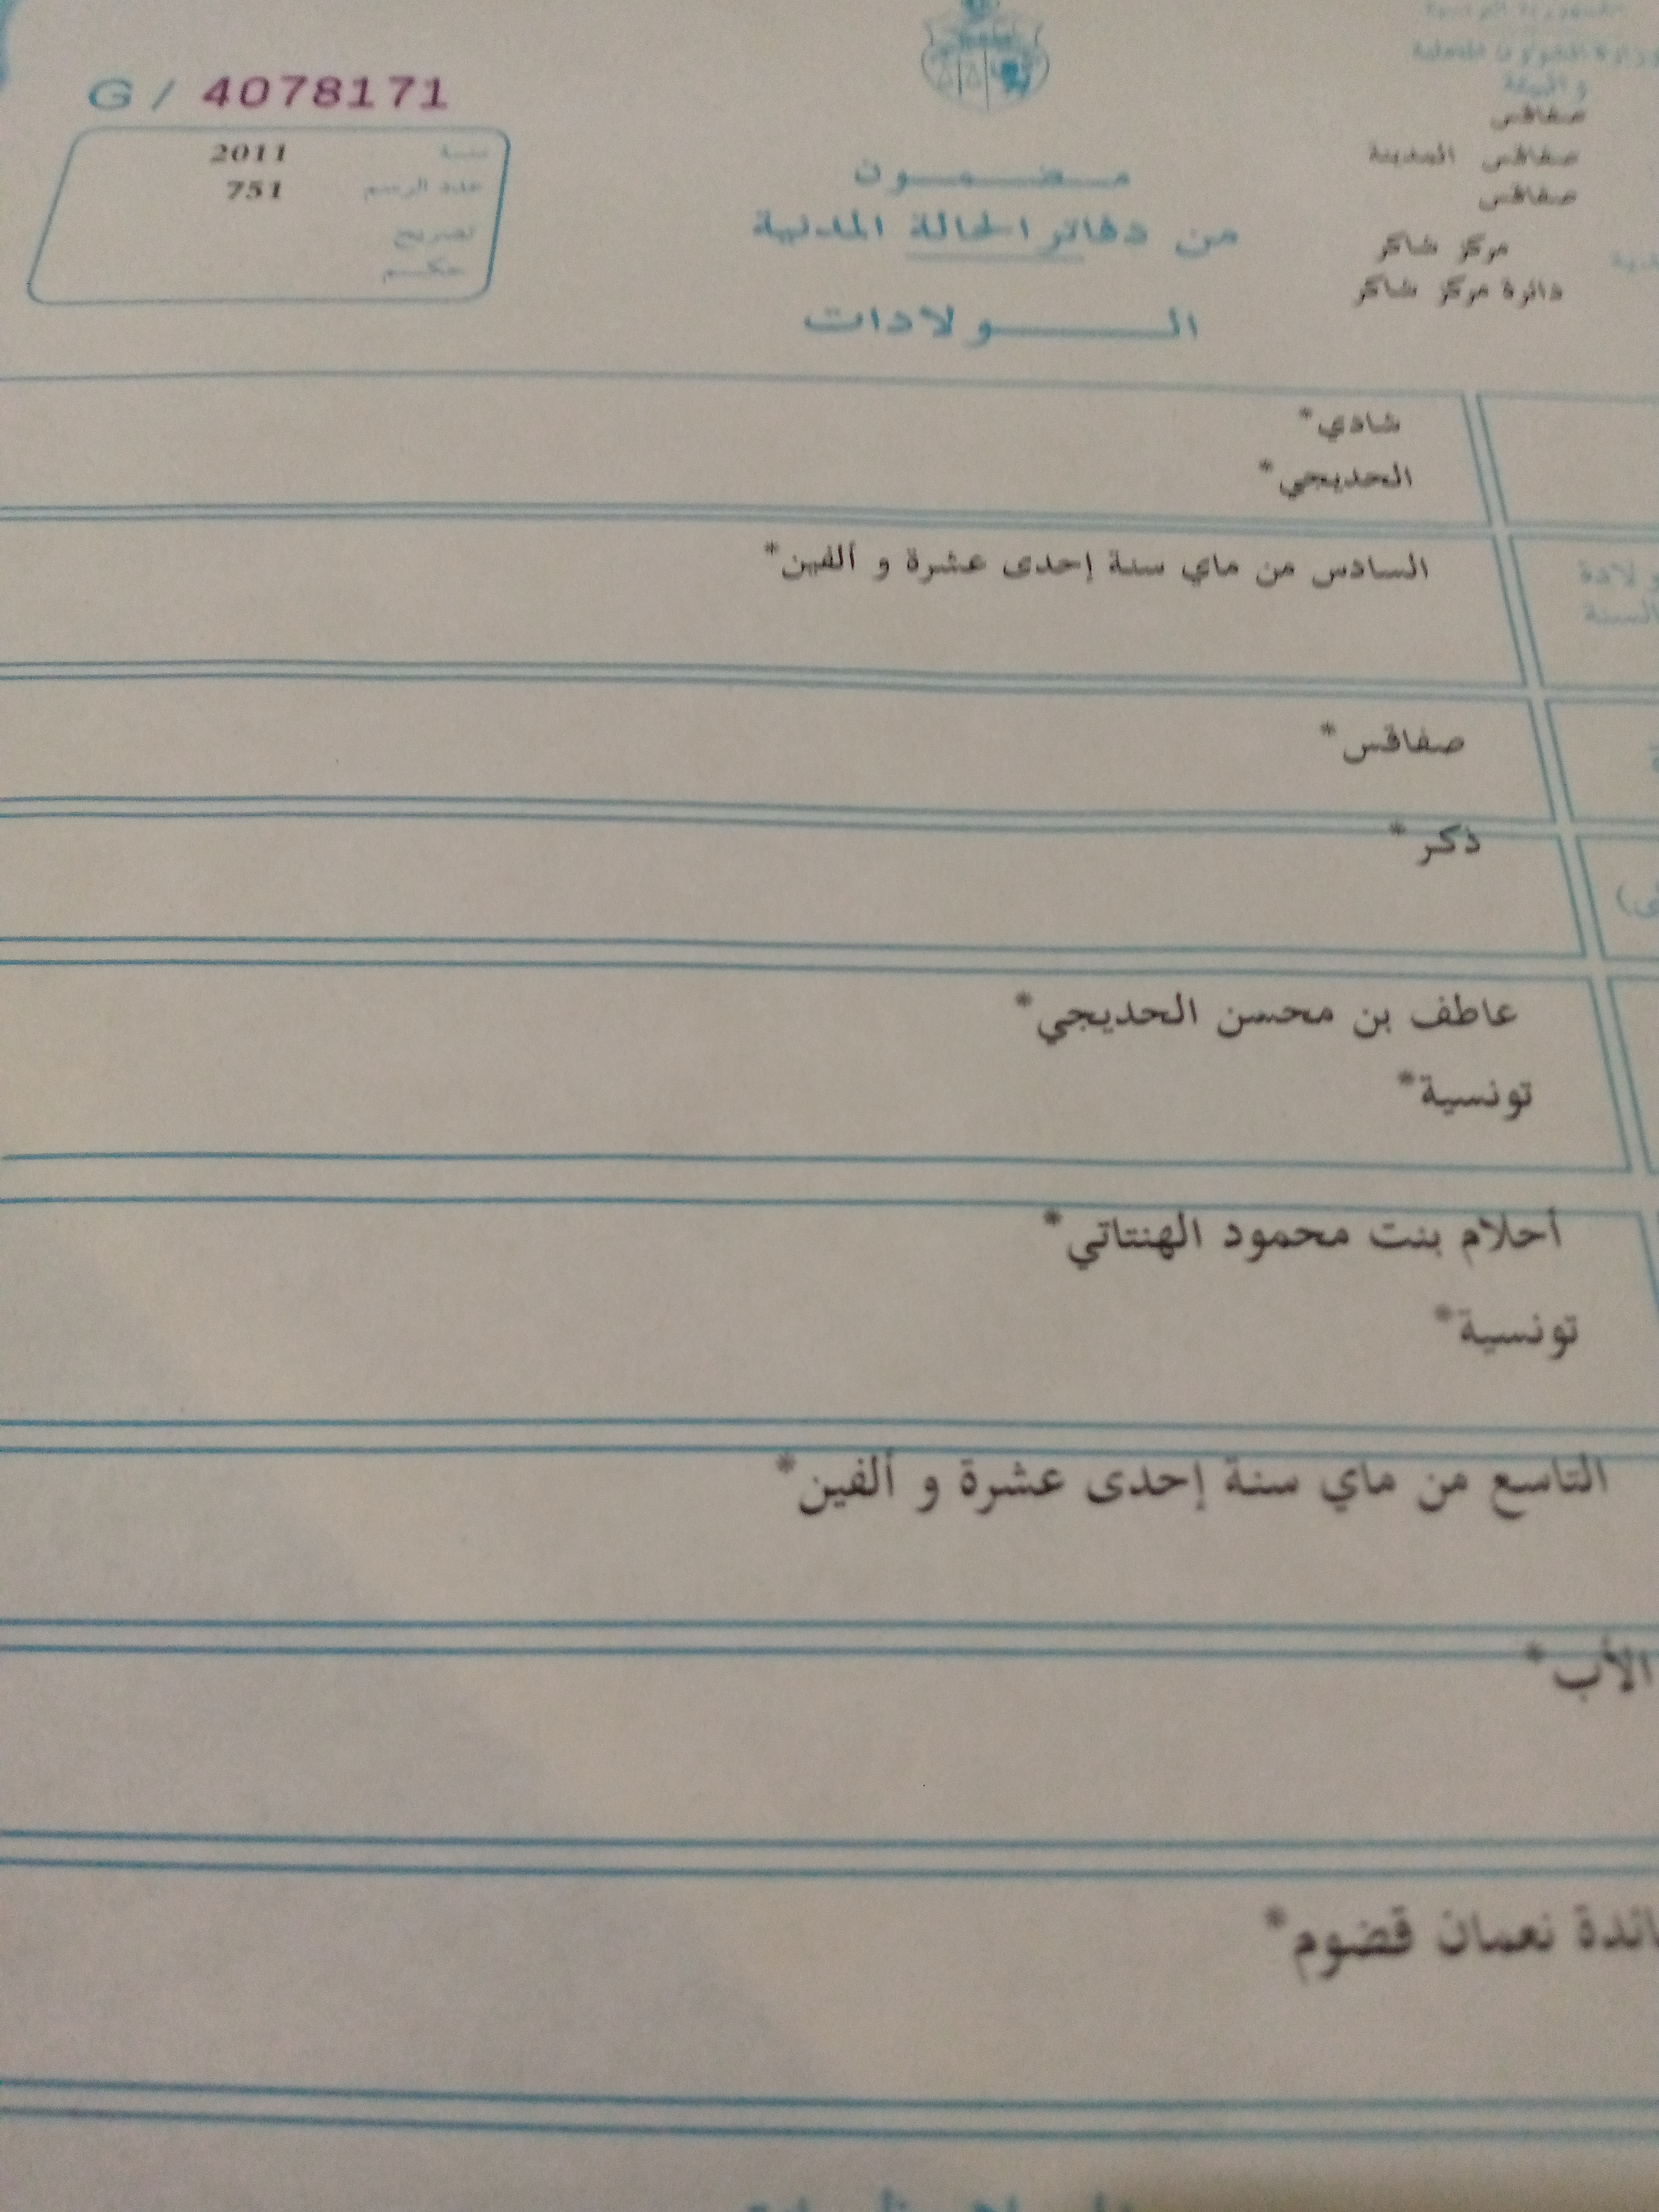 الجمهورية التونسية
وزارة الشؤون المحلية
والبيئة
صفاقس
صفاقس المدينة
صفاقس
مركز شاكر
دائرة مركز شاكر
مضمون
من دفاتر الحالة المدنية
الولادات
G / 4078171
سنة 2011
عدد الرسم 751
تصريح
حكم
شادي*
الحديجي*
السادس من ماي سنة إحدى عشرة و ألفين*
ولادة
السنة
صفاقس*
ذكر*
عاطف بن محسن الحديجي*
تونسية*
أحلام بنت محمود الهنتاتي*
تونسية*
التاسع من ماي سنة إحدى عشرة و ألفين*
الأب*
نعمان قضوم*